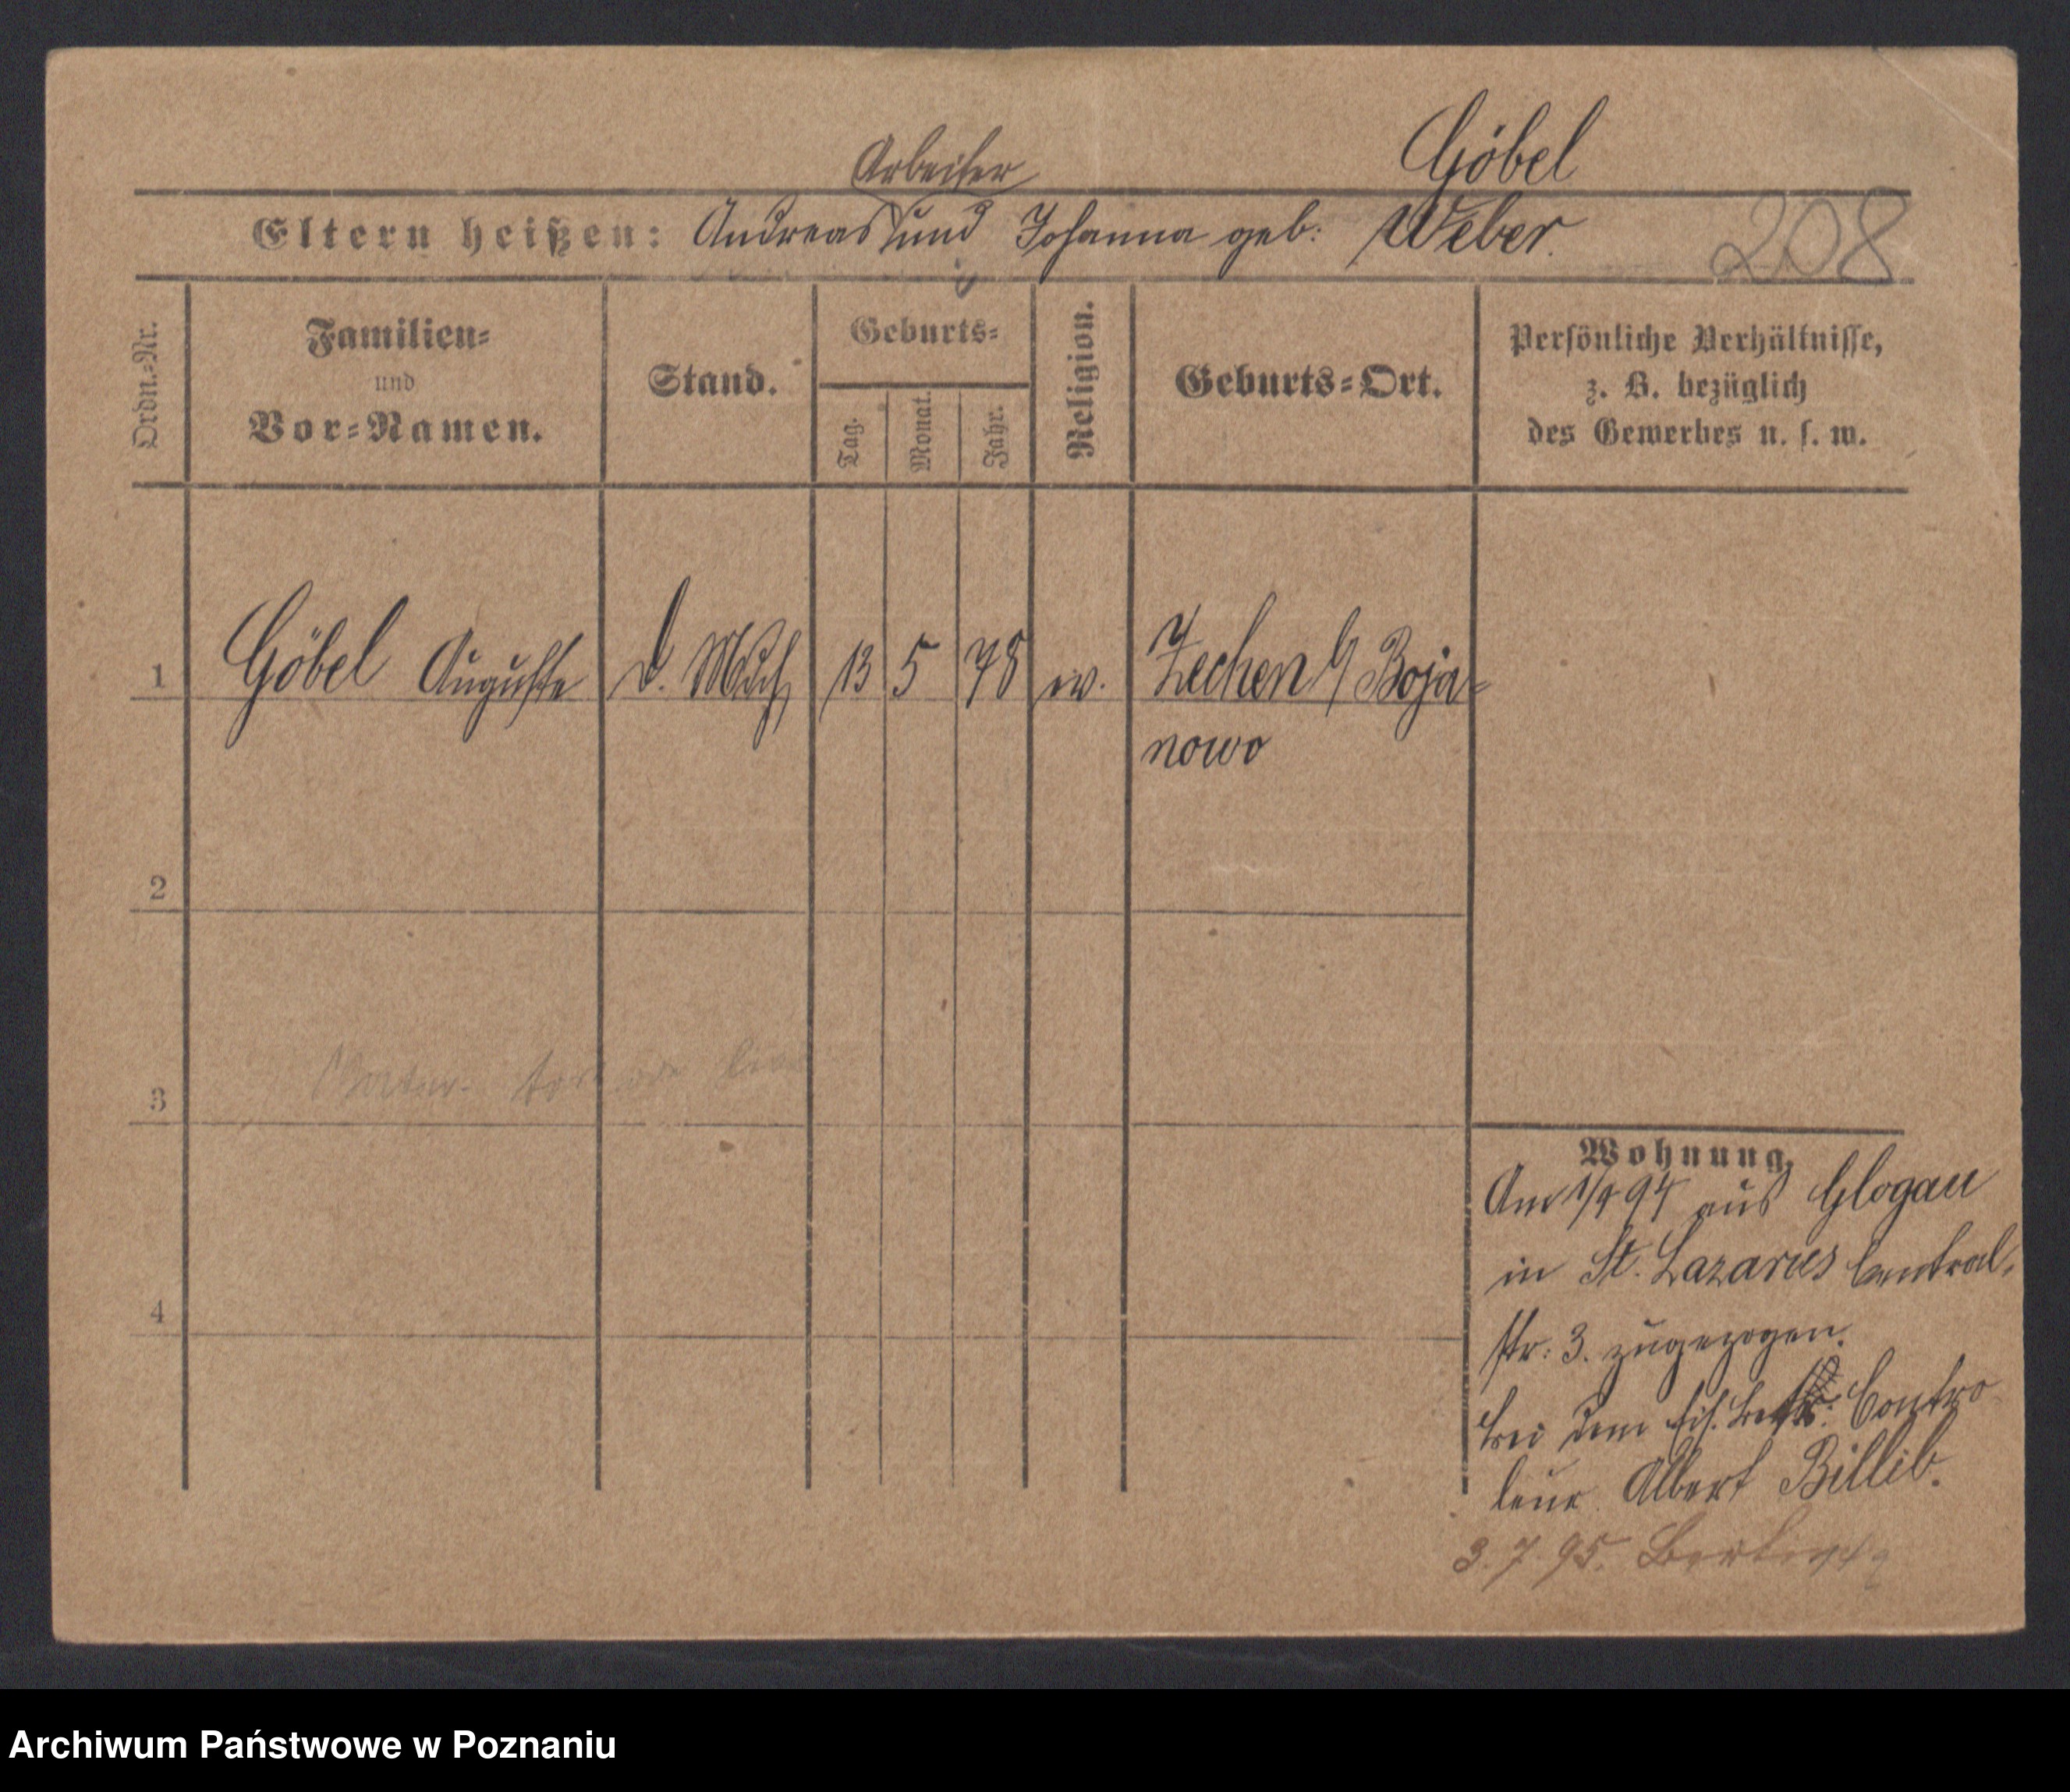 Göbel
Arbeiter
Eltern heißen: Andreas und Johanna geb: Weber.
208
Ordn.-Nr.
Familien-
und
Vor-Namen.
Stand.
Geburts-
Tag.
Monat.
Jahr.
Religion.
Geburts-Ort.
Persönliche Verhältnisse,
z. B. bezüglich
des Gewerbes u. s. w.
1 Göbel Auguste D. Mdch 13 5 78 ev. Zechen b/ Boja-
nowo
2
3
4
Wohnung.
Am 1/4 94 aus Glogau
in St. Lazarus Central-
str: 3. zugezogen.
bei dem Eis. Contro
leur Albert Billib.
3. 7. 95. Berlin
Archiwum Państwowe w Poznaniu